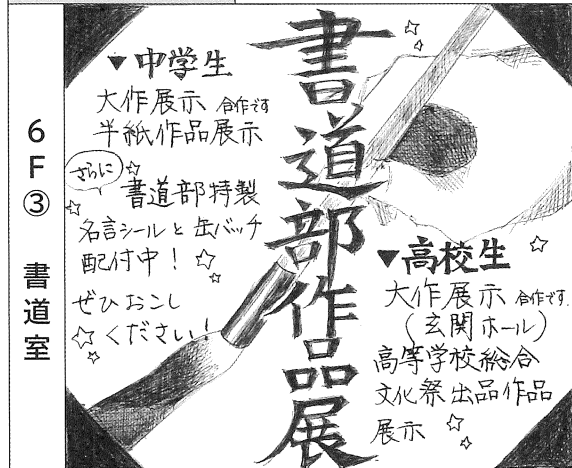 6F③ 書道室
書道部作品展
▼中学生
大作展示 合作です
半紙作品展示
さらに
書道部特製
名言シールと缶バッチ
配付中!
ぜひおこし
ください!
▼高校生
大作展示 合作です。
(玄関ホール)
高等学校総合
文化祭出品作品
展示